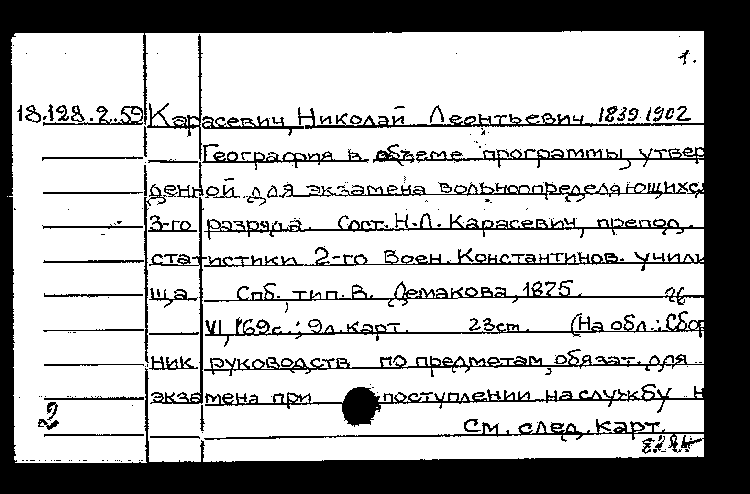 1.
18.128.2.59 Карасевич, Николай Леонтьевич, 1839-1902
География в объеме программы, утвер
денной для экзамена вольноопределяющихся
3-го разряда. Сост. Н.Л. Карасевич, препод.
статистики 2-го Воен. Константинов. учили
ща. Спб., тип. В. Демакова, 1875.
VI, 169 с.; 9 л. карт. 23 см. (На обл.: Сбор
ник руководств по предметам, обязат. для
экзамена при поступлении на службу н
2 См. след. карт.